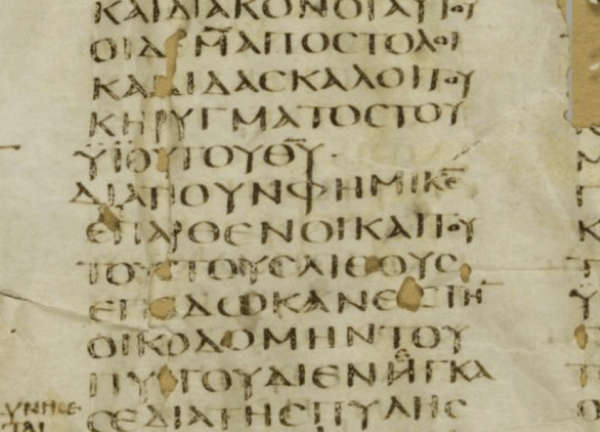 ΚΑΙΔΙΑΚΟΝΟΙΑΥΤΟΥ
ΟΙΔΕΜ̅ΑΠΟϹΤΟΛΟΙ
ΚΑΙΔΙΔΑϹΚΑΛΟΙΤΟΥ
ΚΗΡΥΓΜΑΤΟϹΤΟΥ
ΫΪΟΥΤΟΥΘ̅Υ̅·
ΔΙΑΤΙΟΥΝΦΗΜΙΚ̅Ε̅
ΕΠΑΡΘΕΝΟΙΚΑΙΤΟΥ
ΤΟΥϹΤΟΥϹΛΙΘΟΥϹ
ΕΠΕΔΩΚΑΝΕΙϹΤΗ
ΟΙΚΟΔΟΜΗΝΤΟΥ
ΠΥΡΓΟΥΔΙΕΝΗΓΚΑ
ϹΕΔΙΑΤΗϹΠΥΛΗϹ